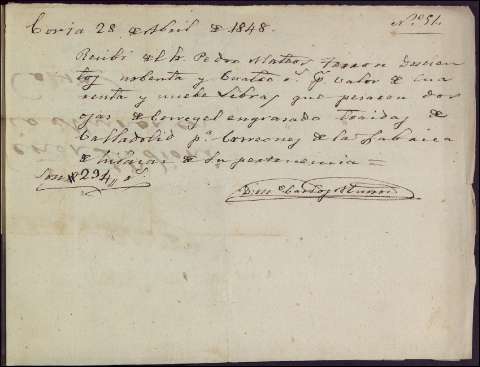 Coria 28 de Abril de 1848.
Nº 51.
Recibi del Sr. Pedro Mateos Doscien
tos nobenta y Cuatro rs. valor de cua
renta y nuebe Libras que pesaron dos
ojas de Correjel engrasado traidas de
Valladolid pª Correones de la Fabrica
de de su pertenencia =
Son 294,, rs.
Carlos